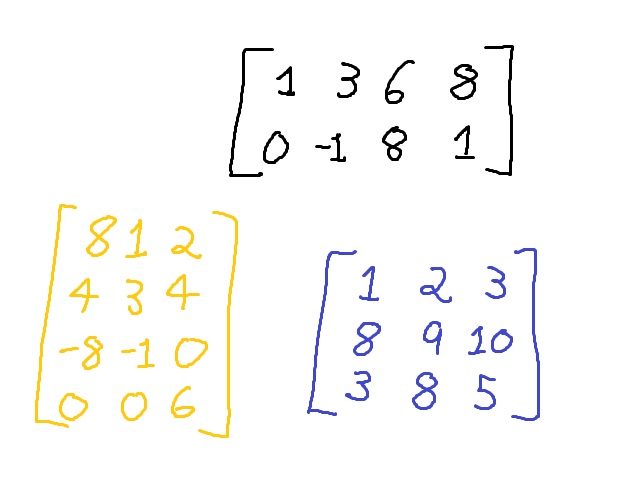 1 3 6 8
0 -1 8 1
8 1 2
4 3 4
-8 -1 0
0 0 6
1 2 3
8 9 10
3 8 5